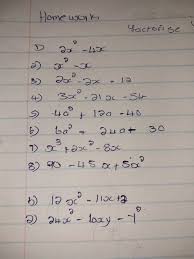 Homework
factorise
1) 2x² - 4x
2) x² - x
3) 2x² - 2x - 12
4) 3x² - 21x - 54
5) 4a² + 12a - 40
6) 6a² + 24a + 30
7) x³ + 2x² - 8x
8) 90 - 45x + 5x²
1) 12x² - 11x + 2
2) 24x² - 10xy - y²